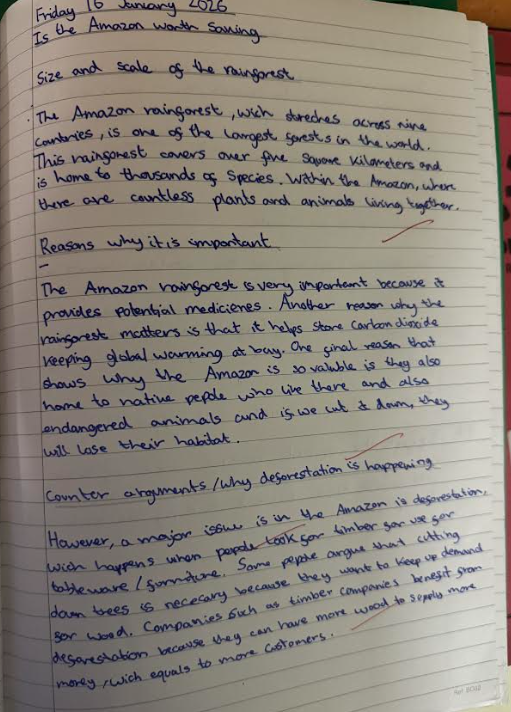 Friday 16 January 2026
Is the Amazon worth Saving
Size and scale of the rainforest
The Amazon raingorest, wich streches across nine
Countries, is one of the largest forests in the world.
This raingorest covers over five Square Kilometers and
is home to thousands of Species. Within the Amazon, where
there are countless plants and animals living together.
Reasons why it is important
The Amazon raingorest is very important because it
provides potential medicienes. Another reason why the
raingorest matters is that it helps store Carbon dioxide
Keeping global warming at bay. One final reason that
shows why the Amazon is so valuble is they also
home to native pepole who live there and also
endangered animals and if we cut it down, they
will lose their habitat.
Counter arguments/why deforestation is happening
However, a major issue is in the Amazon is deforestation,
wich happens when pepole look for timber for use for
tableware/furniture. Some pepole argue that cutting
down trees is nececary because they want to keep up demand
for wood. Companies Such as timber companies benefit from
deforestation because they can have more wood to supply more
money, wich equals to more customers.